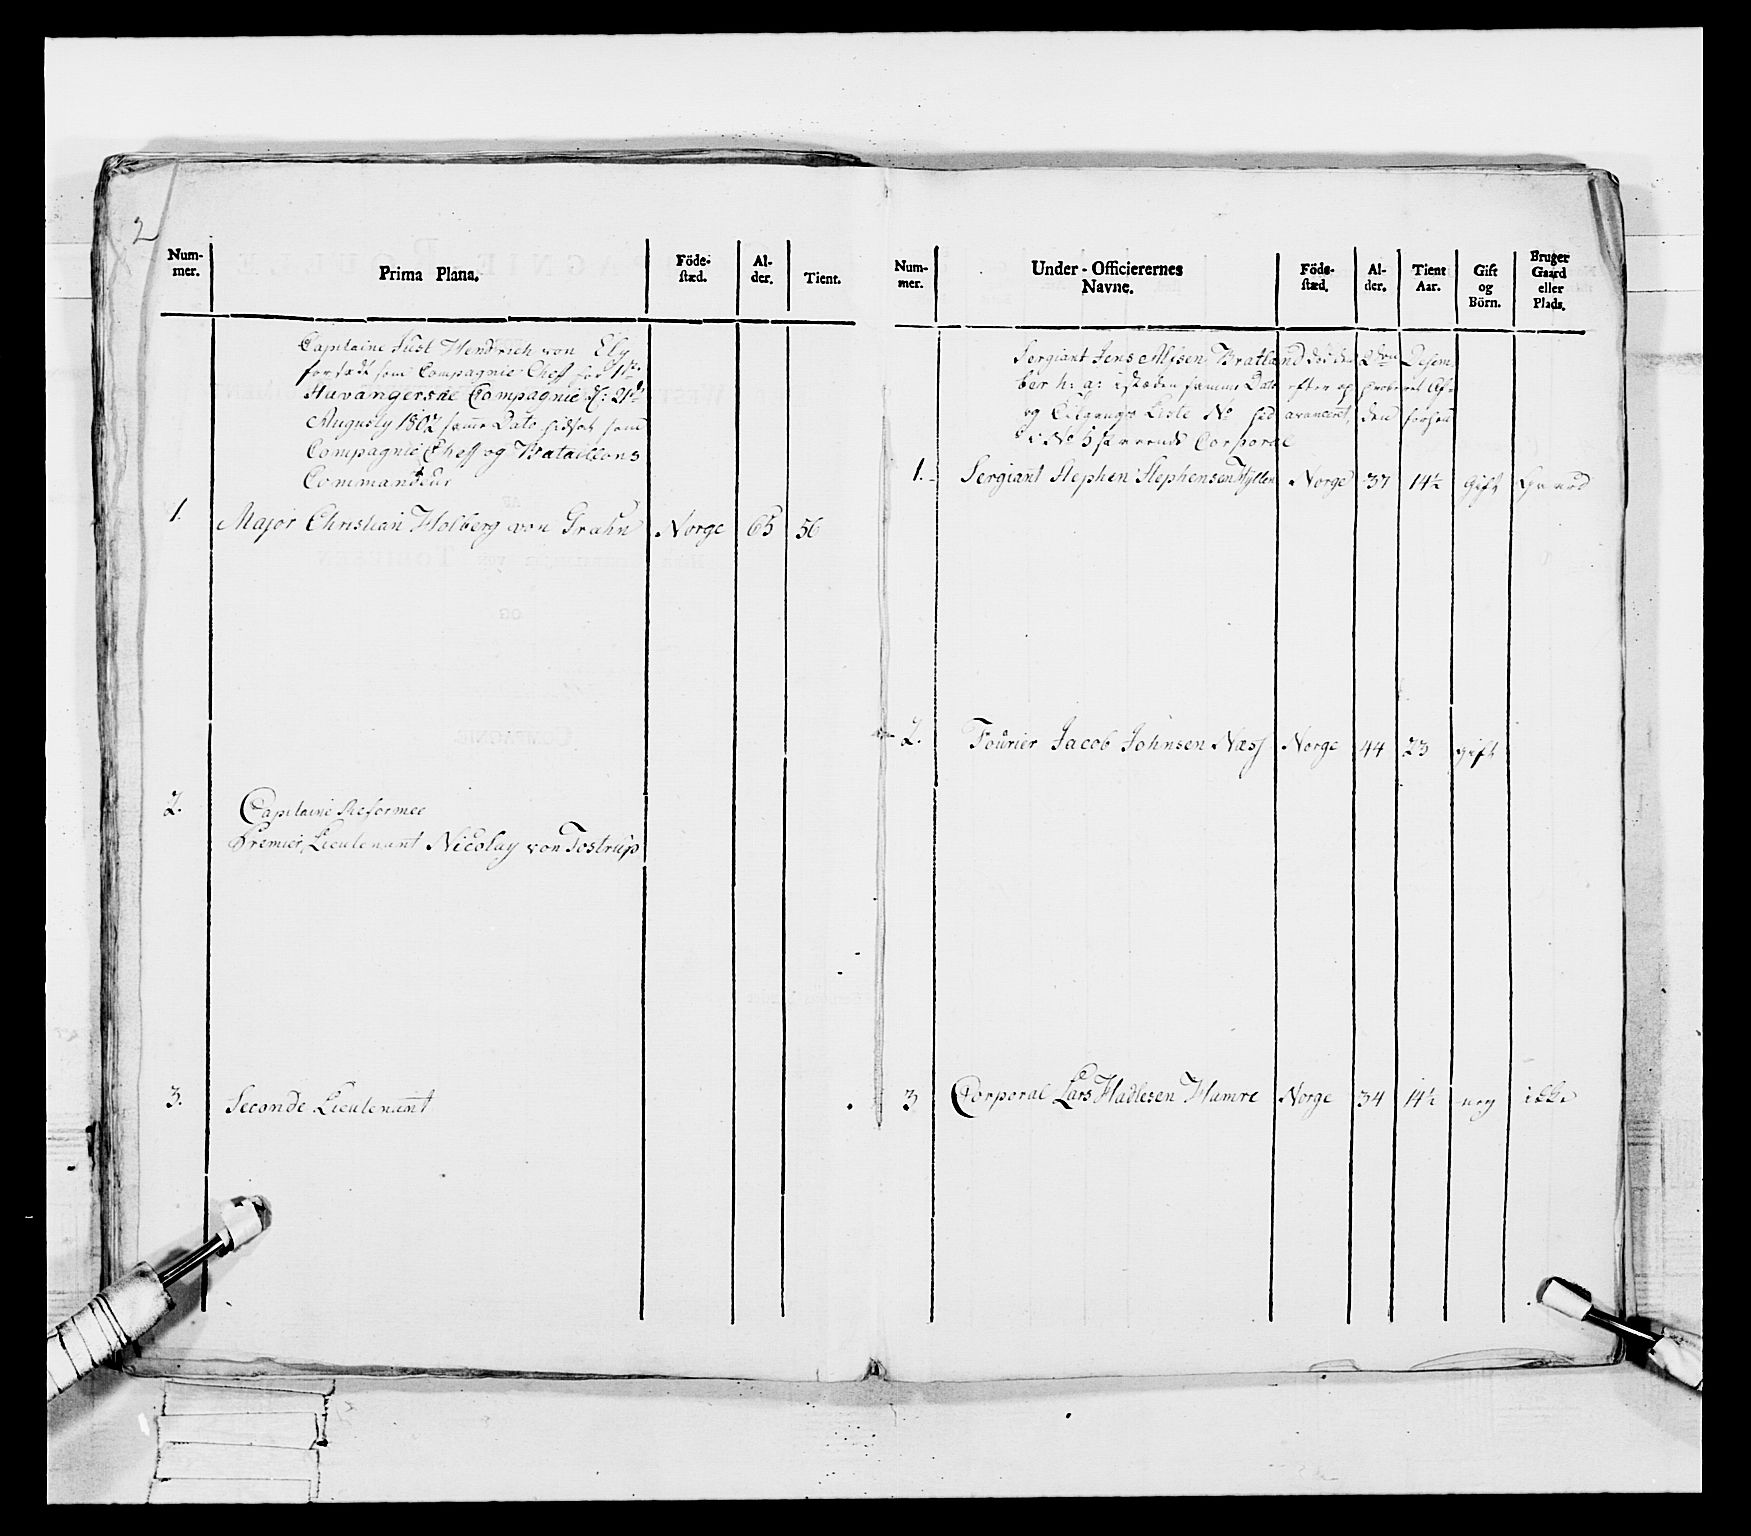 2
Num-
mer.
Prima Plana.
Föde-
stæd.
Al-
der.
Tient.
Capitaine Just Hendrich von Ely
forsadt som Compagnie Cheff for 1ste
Stavangerske Compagnie d: 21de
Augusty 1802 samme Dato hidsat som
Compagnie Cheff og Batallions
Commandeur
1. Major Christian Holberg von Grahn Norge 65 56
2. Capitaine Reformee
Premier Lieutenant Nicolay von Tostrup
3. Seconde Lieutenant
Num-
mer.
Under-Officierernes
Navne.
Föde-
stæd.
Al-
der.
Tient
Aar.
Gift
og
Börn.
Bruger
Gaard
eller
Plads.
Sergiant Jens Bratland død den Desem
ber h: a: i stæden samme Dato efter
og Liste No hid avanceret, den
No 5 værende Corporal
1. Sergiant Stephen Stephensen Hyllen Norge 37 14½ gift Gaard
2. Fourier Jacob Johnsen Næss Norge 44 23 gift
3 Corporal Lars Hadlesen Hamre Norge 34 14½ ney ikke